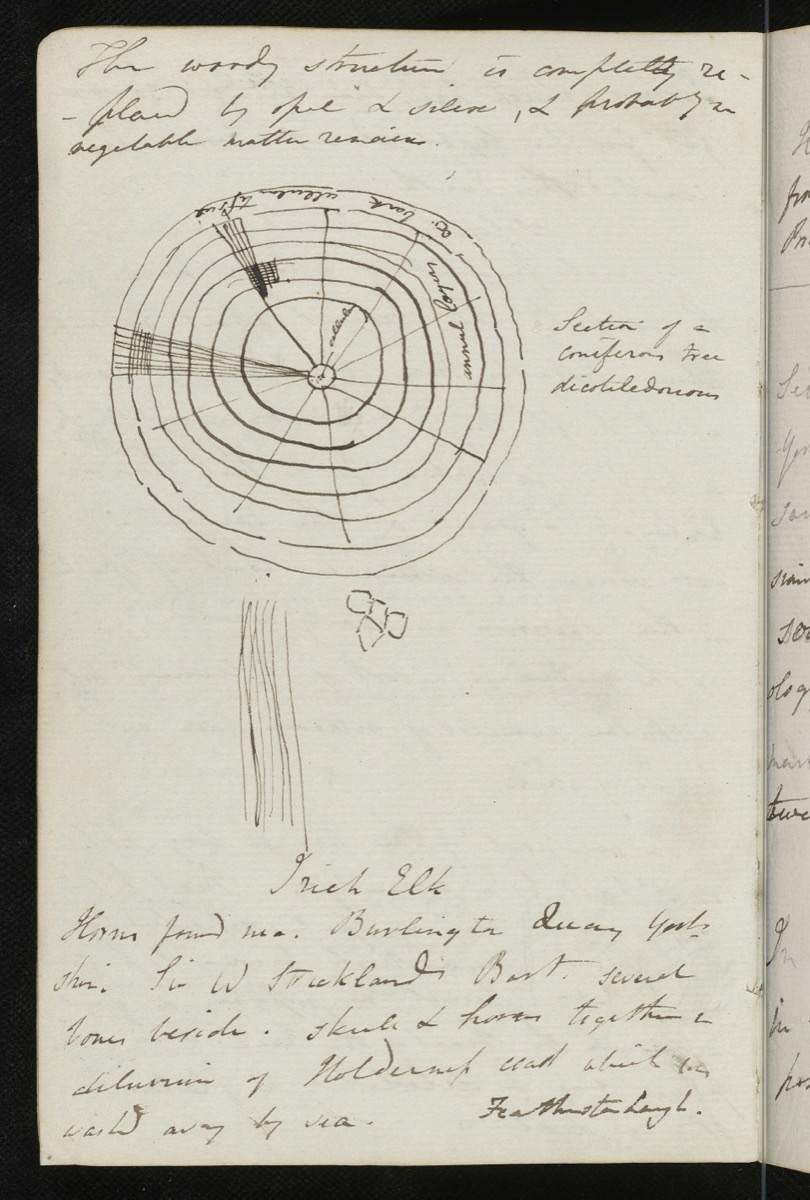 The woody structure is completely re-
-placed by opal & silex, & probably no
vegetable matter remains.
or bark cellular tissue
annual layer
cellular
Section of a
coniferous tree
dicotiledonous
Irish Elk
Horns found near Burlington Quay York-
shire. Sir W Stricklands Bart. several
bones beside. skull & horns together in
diluvium of Holderness coast which was
washd away by sea.
Featherstonhaugh.